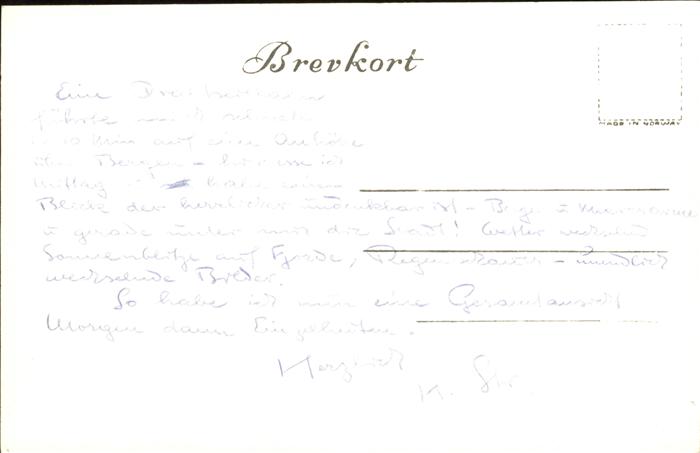 Brevkort
MADE IN NORWAY
Eine Drahtseilbahn
führte mich
10 Min auf eine Anhöhe
über Bergen – hier esse ich
Mittag habe einen
Blick der herrlicher undenkbar ist – Berge u Meeresarme
u gerade unter mir die Stadt! Wetter wechselnd
Sonnenblitze auf Fjorde, Regenschauer – unendlich
wechselnde Bilder.
So habe ich nun eine Gesamtansicht
Morgen dann Einzelheiten.
Herzlich
K. Str.